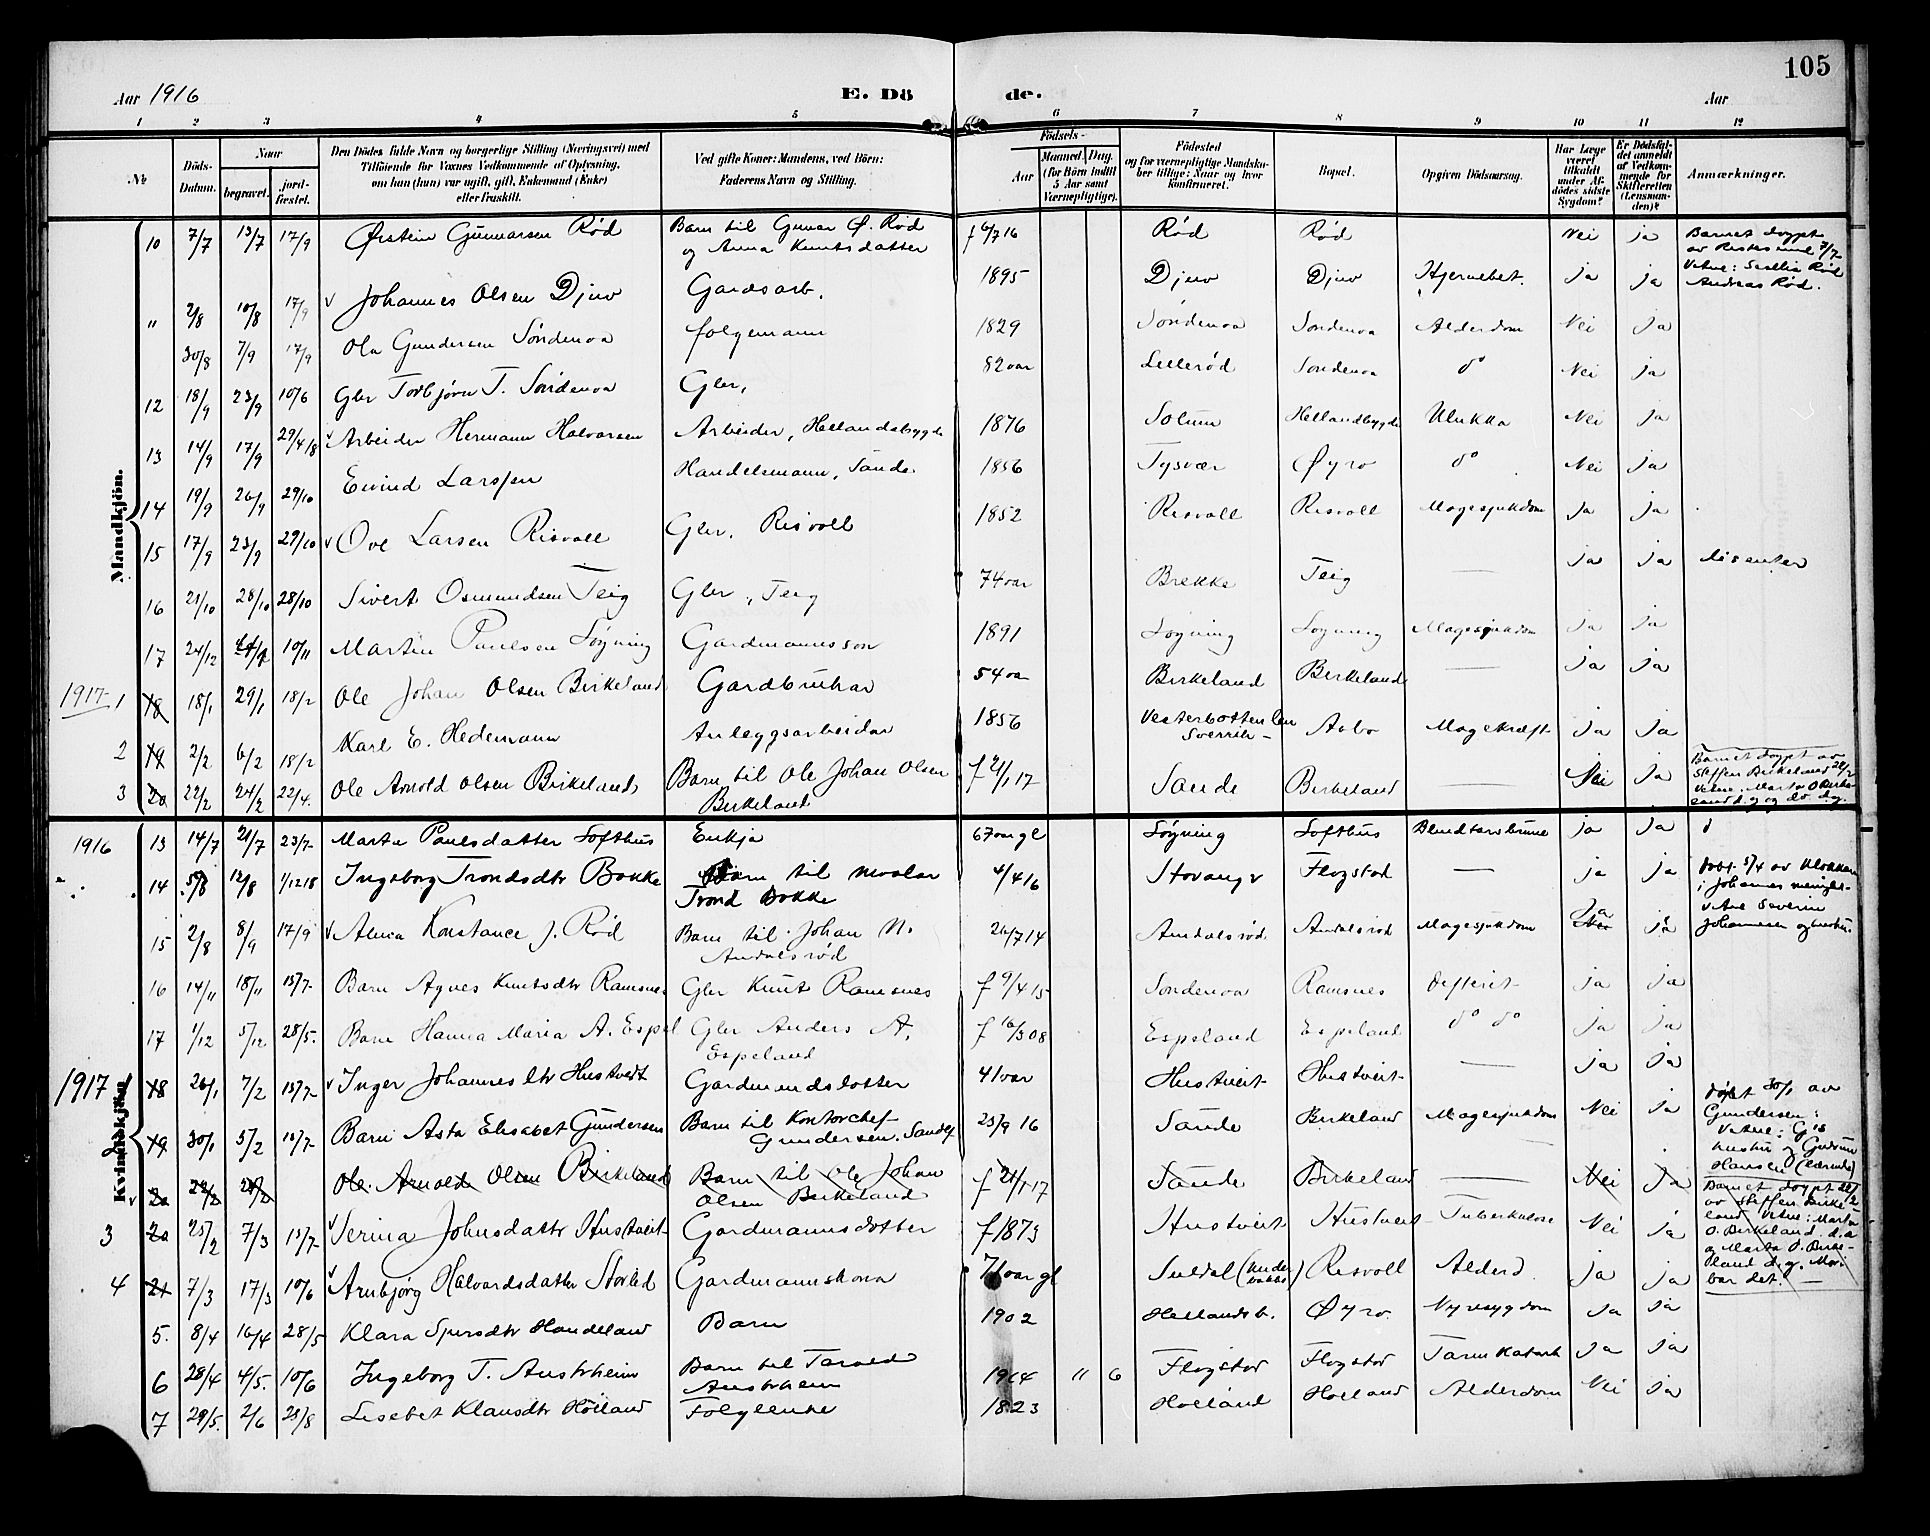 105
Aar 1916
E. Dö
de.
Aar
1 2 3 4 5 6 7 8 9 10 11 12
№
Döds-Datum.
Naar
begravet.
jord-fæstet.
Den Dödes fulde Navn og borgerlige Stilling (Næringsvei) med
Tilföiende for Voxnes Vedkommende af Oplysning,
om han (hun) var ugift, gift, Enkemand (Enke)
eller fraskilt.
Ved gifte Koner: Mandens, ved Börn:
Faderens Navn og Stilling.
Födsels-
Aar
Maaned. Dag.
(for Börn indtil 5 Aar samt Værnepligtige).
Födested
og for værnepligtige Mandskaber tillige: Naar og hvor konfirmeret.
Bopæl.
Opgiven Dödsaarsag.
Har Læge været tilkaldt under Afdödes sidste Sygdom?
Er Dödsfaldet anmeldt af Vedkommende for Skifteretten (Lensmanden)?
Anmærkninger.
Mandkjön.
10 7/7 13/7 17/9 Østein Gunnarsen Rød Barn til Gunar Ø. Rød og Anna Knutsdatter f 6/7 16 Rød Rød Nei ja Barnet døypt
" 2/8 10/8 17/9 Johannes Olsen Djuv Gardsarb. 1895 Djuv Djuv Hjernebet. ja ja Andreas Rød.
30/8 7/9 17/9 Ola Gundersen Søndenaa følgemann 1829 Søndenaa Sondenaa Alderdom Nei ja
12 18/9 23/9 10/6 Gbr Torbjørn T. Søndenaa Gbr. 82 aar Lillerød Sondenaa do Nei ja
13 14/9 17/9 29/4 18 Arbeider Hermann Halvarsen Arbeider, Hellandsbygda 1876 Solum Hellandbygda Ulukka Nei ja
14 19/9 26/9 29/10 Eivind Larssen Handelsmann, Sande 1856 Tysvær Øyro do Nei ja
15 17/9 23/9 29/10 Ove Larsen Risvoll Gbr. Risvoll 1852 Risvoll Risvoll Magesjukdom ja ja
16 21/10 28/10 28/10 Sivert Osmundsen Teig Gbr, Teig 74 aar Brekke Teig — ja ja disenter
17 24/12 10/11 Martin Paulsen Søgning Gardmannsson 1891 Søgning Sogning Magesjukdom ja ja
1917 1 18 18/1 29/1 18/2 Ole Johan Olsen Birkeland Gardbrukar 54 aar Birkeland Birkeland — ja ja
2 19 2/2 6/2 18/2 Karl E. Hedemann Anleggsarbeidar 1856 Vesterbotten len Sverrik- Aabo Magekræft ja ja
3 20 22/2 24/2 22/4. Ole Arnold Olsen Birkeland Barn til Ole Johan Olsen Birkeland f 21/1 17 Sande Birkeland Nei ja Barnet døypt av Steffen Birkeland 22/2
Kvindekjön.
1916 13 14/7 21/7 23/7 Marta Paulsdatter Lofthus Enkja 67 aar gl Søgning Lofthus ja ja
14 5/8 12/8 1/12 18 Ingeborg Trondsdtr Bakke Barn til Trond Bakke 4/4 16 Stavangr Flogstad — ja ja
15 2/8 8/9 17/9 Alma Konstance J. Rød Barn til Johan N. Andalsrød 26/7 14 Andalsrød Andalsrød Magesjukdom Ja ja
16 14/11 18/11 15/7 Barn Agnes Knutsdtr Ramsnes Gbr Knut Ramsnes f 9/4 15 Søndenaa Ramsnes Difterit ja ja
17 1/12 5/12 28/5. Barn Hanna Maria A. Espel Gbr Anders A. Espeland f 16/3 08 Espeland Espeland do do ja ja
1917 18 26/1 7/2 15/7 Inger Johannesdtr Hustveit Gardmandsdotter 41 aar Hustveit Hustveit — ja ja
19 30/1 5/2 15/7 Barn Asta Elisabet Gundersen Barn til Kontorchef Gundersen. Sande 23/9 16 Sande Birkeland Magesjukdom Nei ja døpt 30/1 av Gundersen:
20 22/2 24/2 Ole Arnold Olsen Birkeland Barn til Ole Johan Olsen Birkeland f 21/1 17 Sande Birkeland — Nei ja Barnet døypt 22/2 av Steffen Birkeland Vitne: Marta O. Birkeland d.e og Marta O. Birkeland d.y.
3 20 25/2 7/3 15/7 Serina Johnsdattr Hustveit Gardmannsdotter f 1873 Hustveit Hustveit Tuberkulose Nei ja
4 21 7/3 17/3 10/6 Arnbjørg Halvardsdattr Storlid Gardmannskona 71 aar gl Suldal Risvoll Alderd. ja ja
5. 8/4 16/4 28/5 Klara Sjursdtr Handeland Barn 1902 Hellandsb. Øyro. Nyresygdom ja ja
6 28/4 4/5. 10/6 Ingeborg T. Austrheim Barn til Tarald Austrheim 1914 " 6 Flogstad Flogstad Tarmkatarh ja ja
7 29/5. 2/6 25/8 Lisabet Klausdtr Hølland Følgjenke 1823 Hølland Hølland Alderdom Nei ja